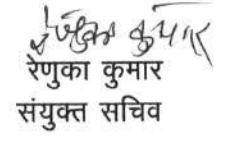 रेणुका कुमार
रेणुका कुमार
संयुक्त सचिव